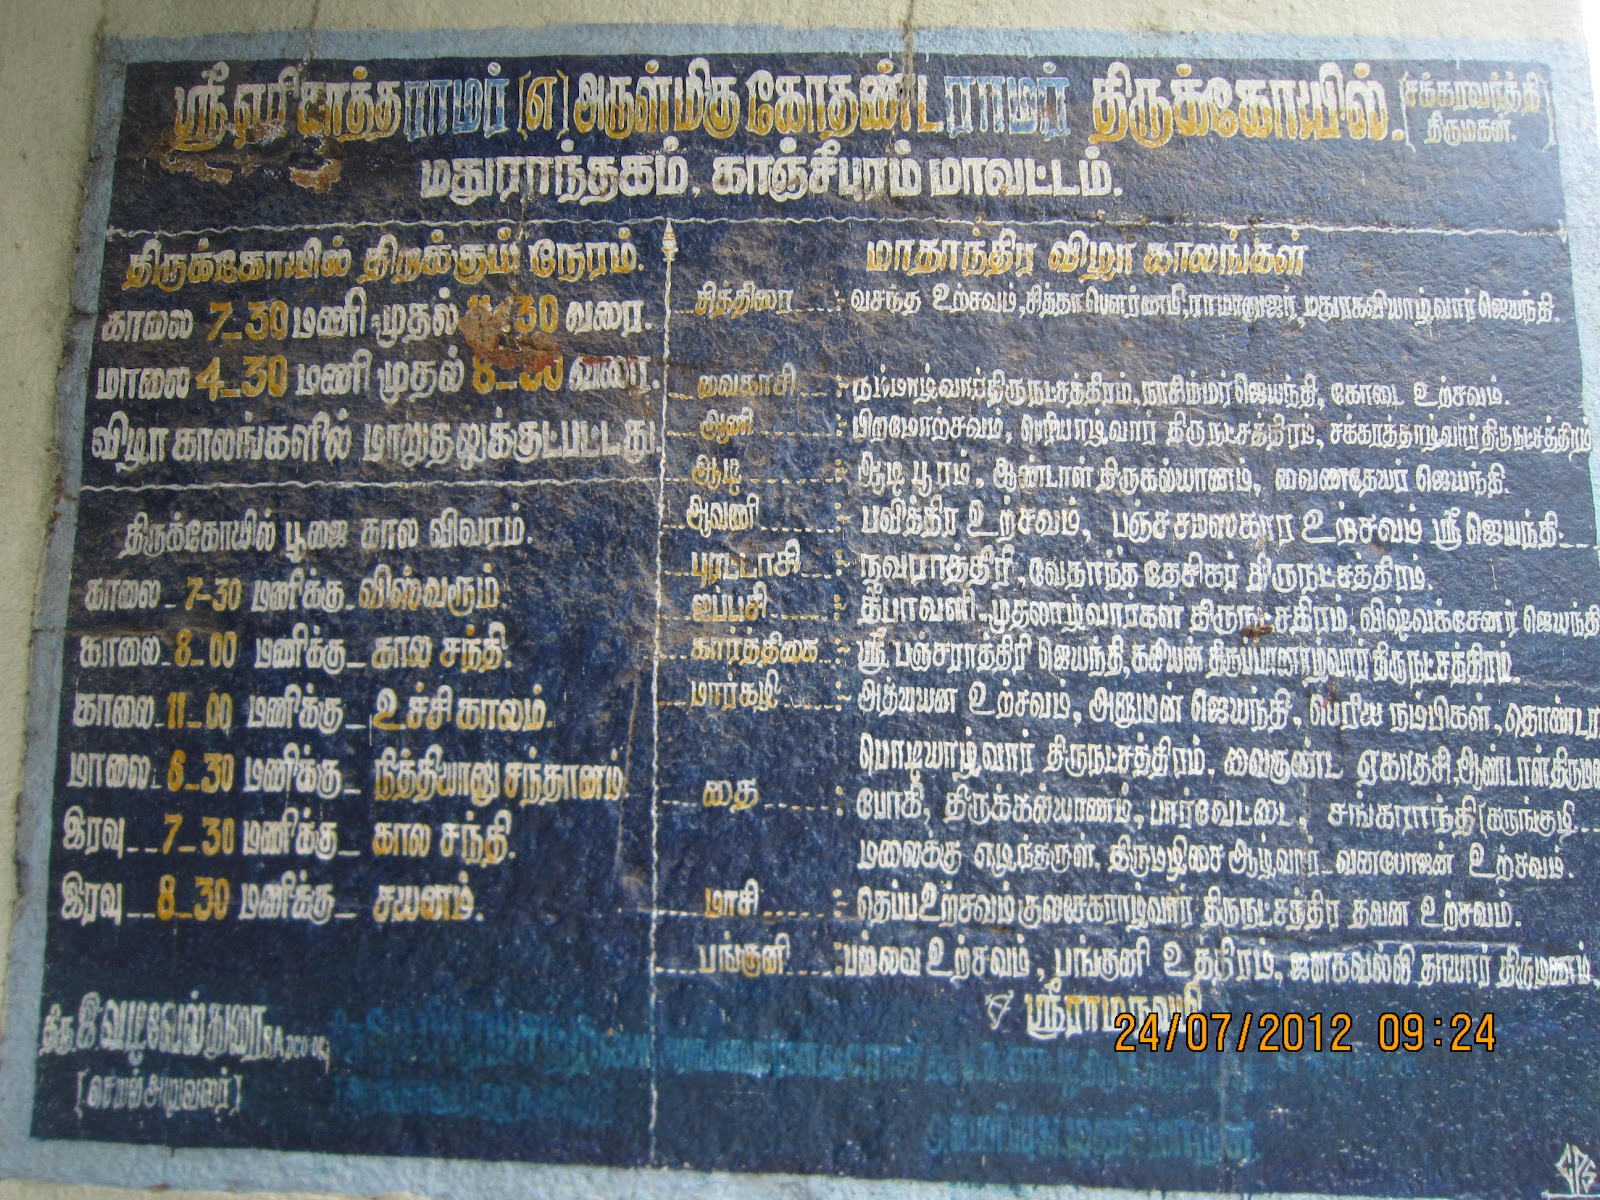 ஸ்ரீ ஏரி காத்த ராமர் (எ) அருள்மிகு கோதண்ட ராமர் திருக்கோயில். (சக்கரவர்த்தி திருமகன்.)
மதுராந்தகம், காஞ்சிபுரம் மாவட்டம்.
திருக்கோயில் திறக்கும் நேரம்.
காலை 7_30 மணி முதல் 11_30 வரை.
மாலை 4_30 மணி முதல் 8_30 வரை.
விழா காலங்களில் மாறுதலுக்குட்பட்டது.
திருக்கோயில் பூஜை கால விவரம்.
காலை _ 7-30 மணிக்கு _ விஸ்வரூம்.
காலை _ 8_00 மணிக்கு _ கால சந்தி.
காலை _ 11_00 மணிக்கு _ உச்சி காலம்.
மாலை _ 6_30 மணிக்கு _ நித்தியானு சந்தானம்.
இரவு _ 7_30 மணிக்கு _ கால சந்தி.
இரவு _ 8_30 மணிக்கு _ சயனம்.
திரு இ.வடிவேல்துரை
(செயல் அலுவலர்)
மாதாந்திர விழா காலங்கள்
சித்திரை :- வசந்த உற்சவம், சித்ரா பௌர்ணமி, ராமானுஜர், மதுரகவியாழ்வார் ஜெயந்தி.
வைகாசி :- நம்மாழ்வார் திருநட்சத்திரம், நரசிம்மர் ஜெயந்தி, கோடை உற்சவம்.
ஆனி :- பிரமோற்சவம், பெரியாழ்வார் திருநட்சத்திரம், சக்கரத்தாழ்வார் திருநட்சத்திரம்
ஆடி :- ஆடி பூரம், ஆண்டாள் திருகல்யாணம், வைணதேயர் ஜெயந்தி.
ஆவணி :- பவித்திர உற்சவம், பஞ்சசமஸ்கார உற்சவம் ஸ்ரீ ஜெயந்தி.
புரட்டாசி :- நவராத்திரி, வேதாந்த தேசிகர் திருநட்சத்திரம்.
ஐப்பசி :- தீபாவளி முதலாழ்வார்கள் திருநட்சதிரம், விஷ்வக்சேனர் ஜெயந்தி
கார்த்திகை :- ஸ்ரீ பஞ்சராத்திரி ஜெயந்தி, கலியன் திருப்பாணாழ்வார் திருநட்சத்திரம்.
மார்கழி :- அத்யயன உற்சவம், அனுமன் ஜெயந்தி, பெரிய நம்பிகள், தொண்டர
பொடியாழ்வார் திருநட்சத்திரம், வைகுண்ட ஏகாதசி, ஆண்டாள் திருமண
தை :- போகி, திருக்கல்யாணம், பார்வேட்டை, சங்கராந்தி (கருங்குழி
மலைக்கு எழுந்தருள். திருமழிசை ஆழ்வார் வனபோஜன உற்சவம்.
மாசி :- தெப்பஉற்சவம் குலசேகராழ்வார் திருநட்சத்திர தவன உற்சவம்.
பங்குனி :- பல்லவ உற்சவம், பங்குனி உத்திரம், ஜனகவல்லி தாயார் திருமணம்,
ஸ்ரீராமநவமி
24/07/2012 09:24
CPS